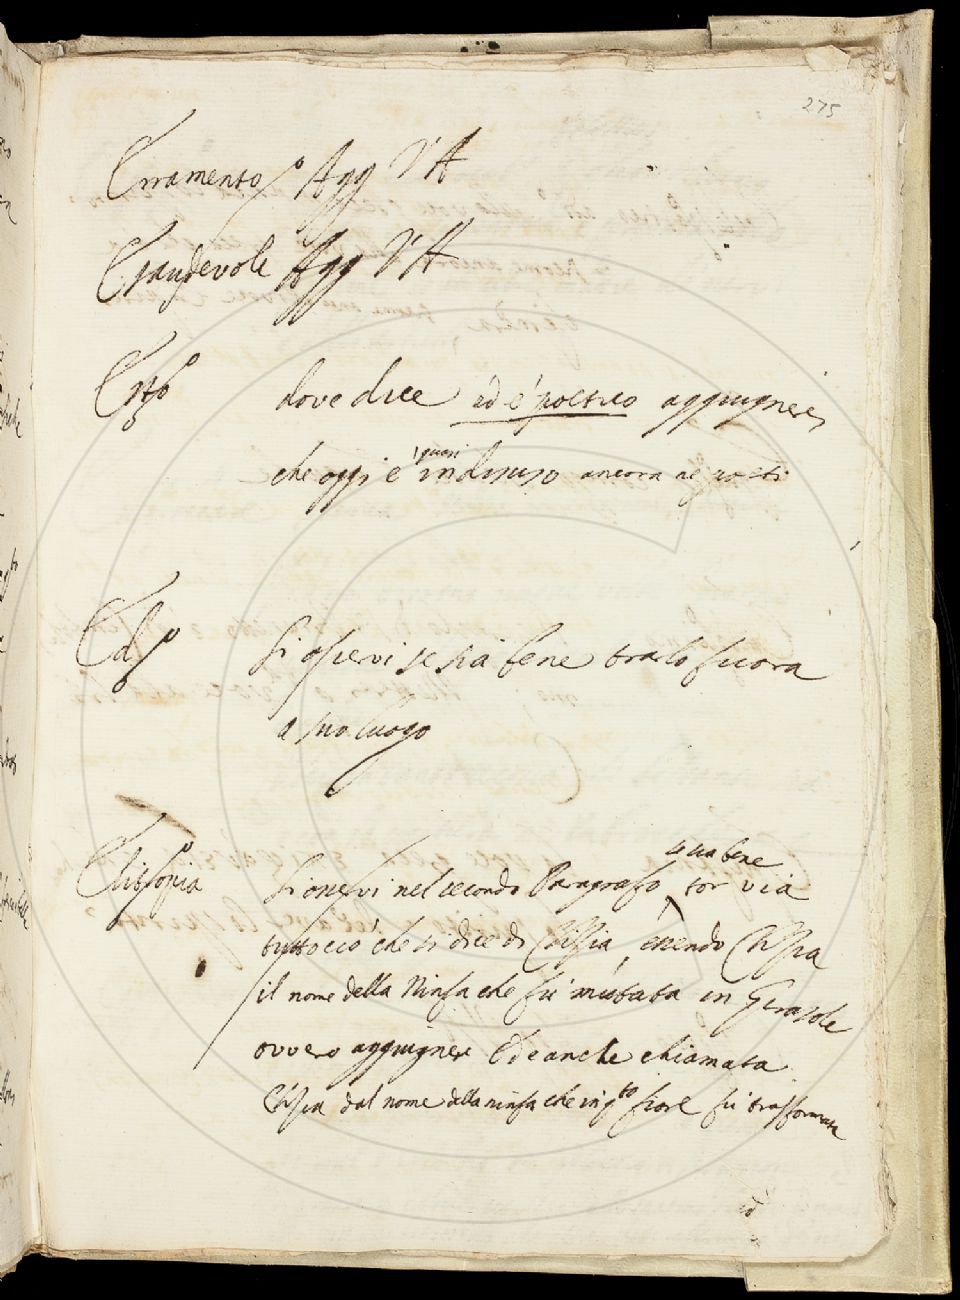 275
Erramento Agg V A
Esaudevole Agg V A
dove dice ed è poetico aggiugnere,
che oggi è quasi in disuso ancora ne
Si osservi se sia bene trarlo fuora
a suo luogo
Elitropia Si osservi nel secondo Paragrafo se sia bene tor via
tutto ciò che si dice di Clizia, essendo Clizia
il nome della Ninfa che fù mutata in Girasole
ovvero aggiugnere Ed è anche chiamata
Clizia dal nome della ninfa che in qto fiore fù trasformata